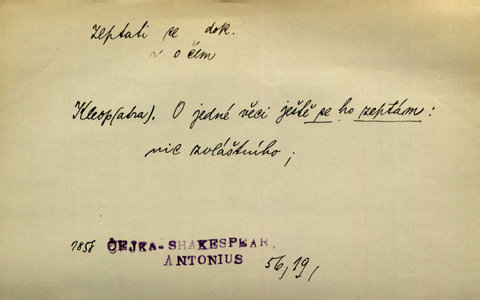 zeptati se dok.
v o čem
Kleop(atra). O jedné věci ještě se ho zeptám:
nic zvláštního;
1857 ČEJKA-SHAKESPEAR,
ANTONIUS 56,19,